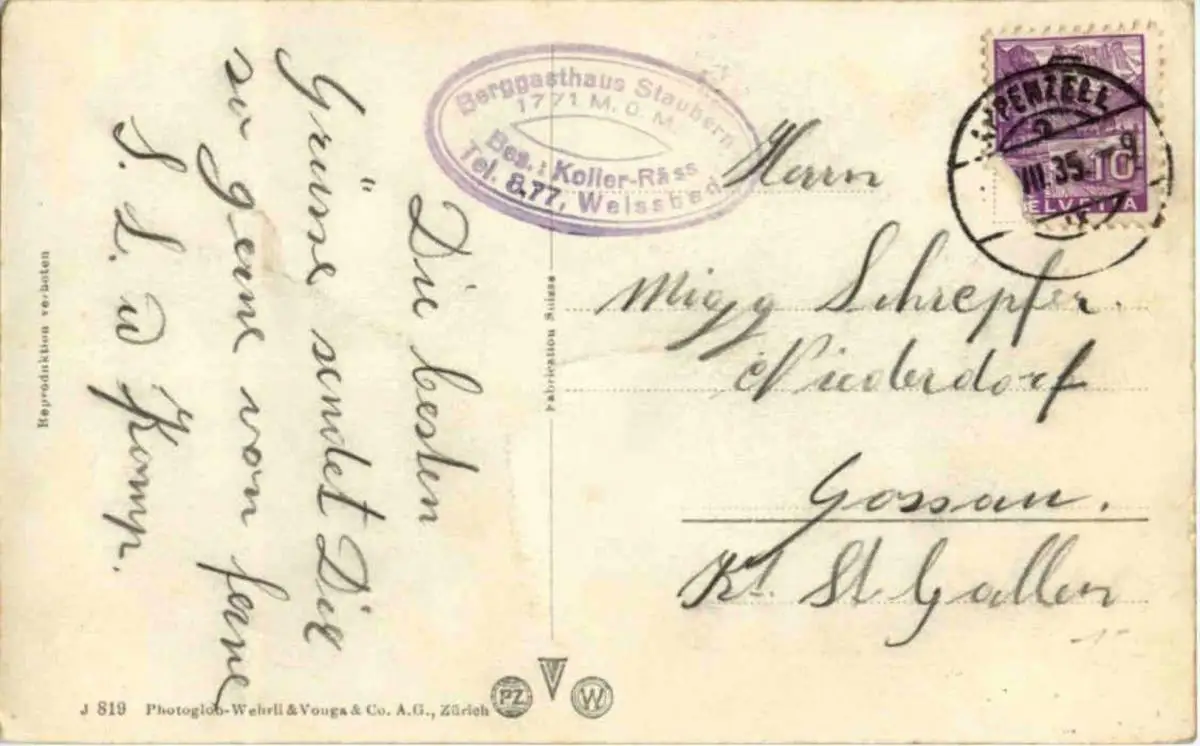 Die besten
Grüsse sendet Dir
so gerne von ferne
J. L. u Komp.
Berggasthaus Staubern
1771 M. Ü. M.
Bes.: Koller-Räss
Tel. 8.77, Weissbad
APPENZELL
VIII.35. 9
10
HELVETIA
Herrn
Migg Schrepfer.
Niederdorf
Gossau.
Kt. St Gallen
Reproduktion verboten
Fabrication Suisse
J 819 Photoglob-Wehrli & Vouga & Co. A.G., Zürich
PZ
W